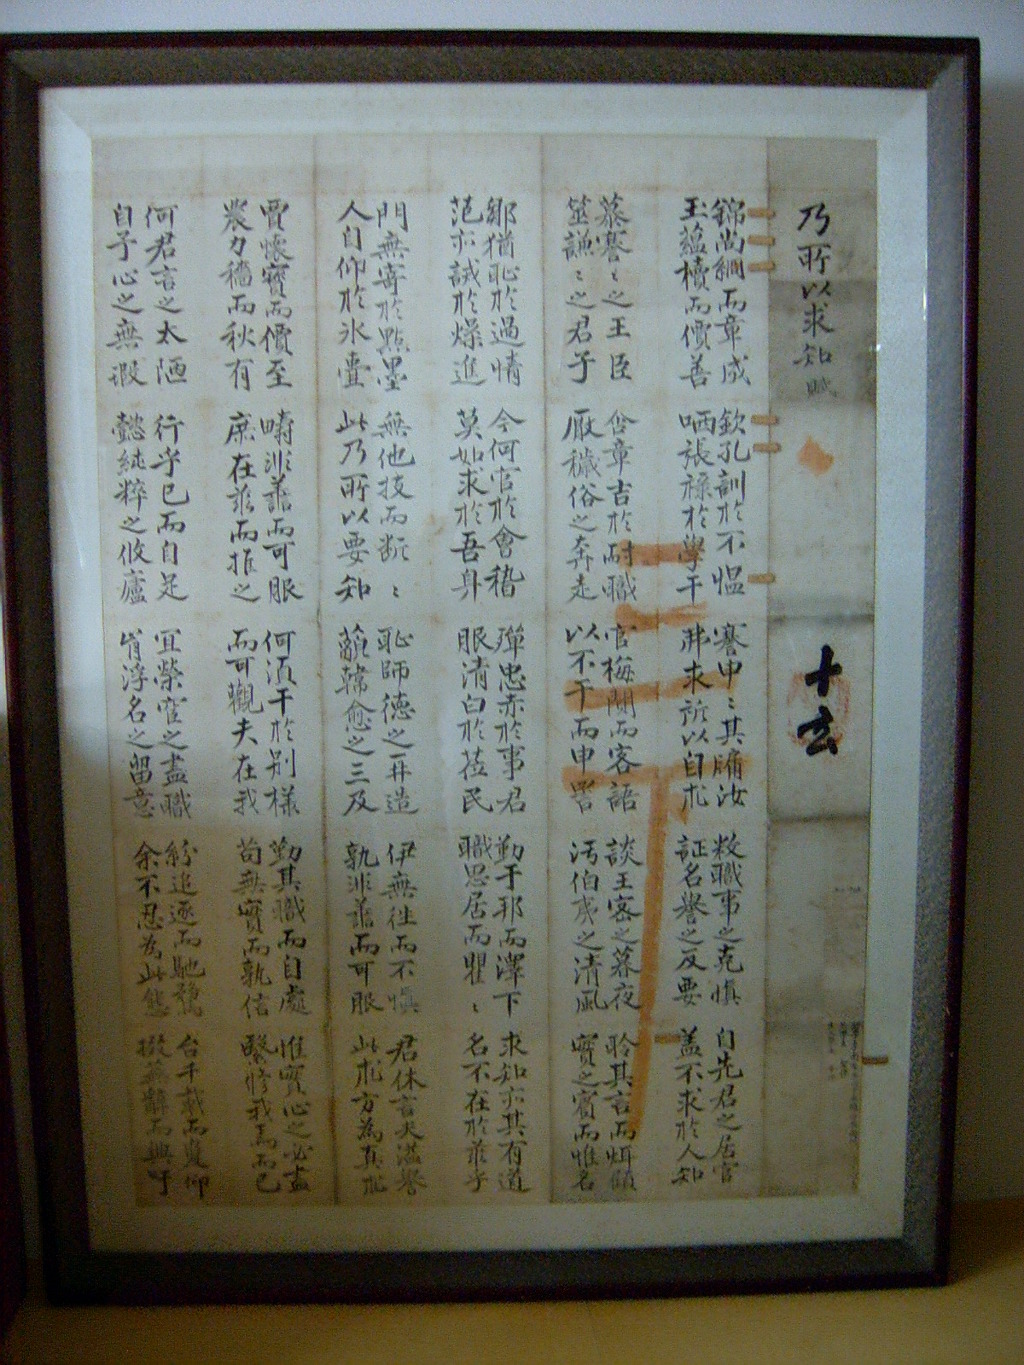 乃所以求知賦
十玄
錦尚絅而章成 欽孔訓於不慍 謇申申其牖汝 敕職事之克愼 自先君之居官
玉蘊櫝而價善 哂張祿於學干 弗求 以自 証名譽之反要 蓋不求於人知
慕謇〻之王臣 含章吉於耐職 官梅 而客語 談王密之暮夜 聆其言而
筮謙〻之君子 厭穢俗之奔走 以不干而申詈 污伯 之清風 實之賓而惟名
鄒猶恥於過情 今何官於會稽 殫忠亦於事君 勤于 而澤下 求知亦其有道
范亦誡於燥進 莫如求於吾身 眼清白於莅民 職思居而瞿〻 名不在於 乎
門無寄於點墨 無他技而斷〻 恥師德之 造 伊無往而不愼 君休言 溢譽
人自仰於氷壺 此乃所以要知 韓愈之三及 孰非 而可服 此求方為真求
賈懷寶而價至 疇非 而可服 何須干於別樣 勤其職而自處 惟實心之必盡
農力穡而秋有 庶在玆而推之 而可觀夫在我 苟無實而孰信 修我焉而已
何君言之太陋 行乎已而自足 宜榮宦之盡職 紛追逐而馳騖 台千載而夐仰
自予心之無瑕 懿純粹之攸廬 肯浮名之留意 余不忍為此態 掇蕪辭而興吁